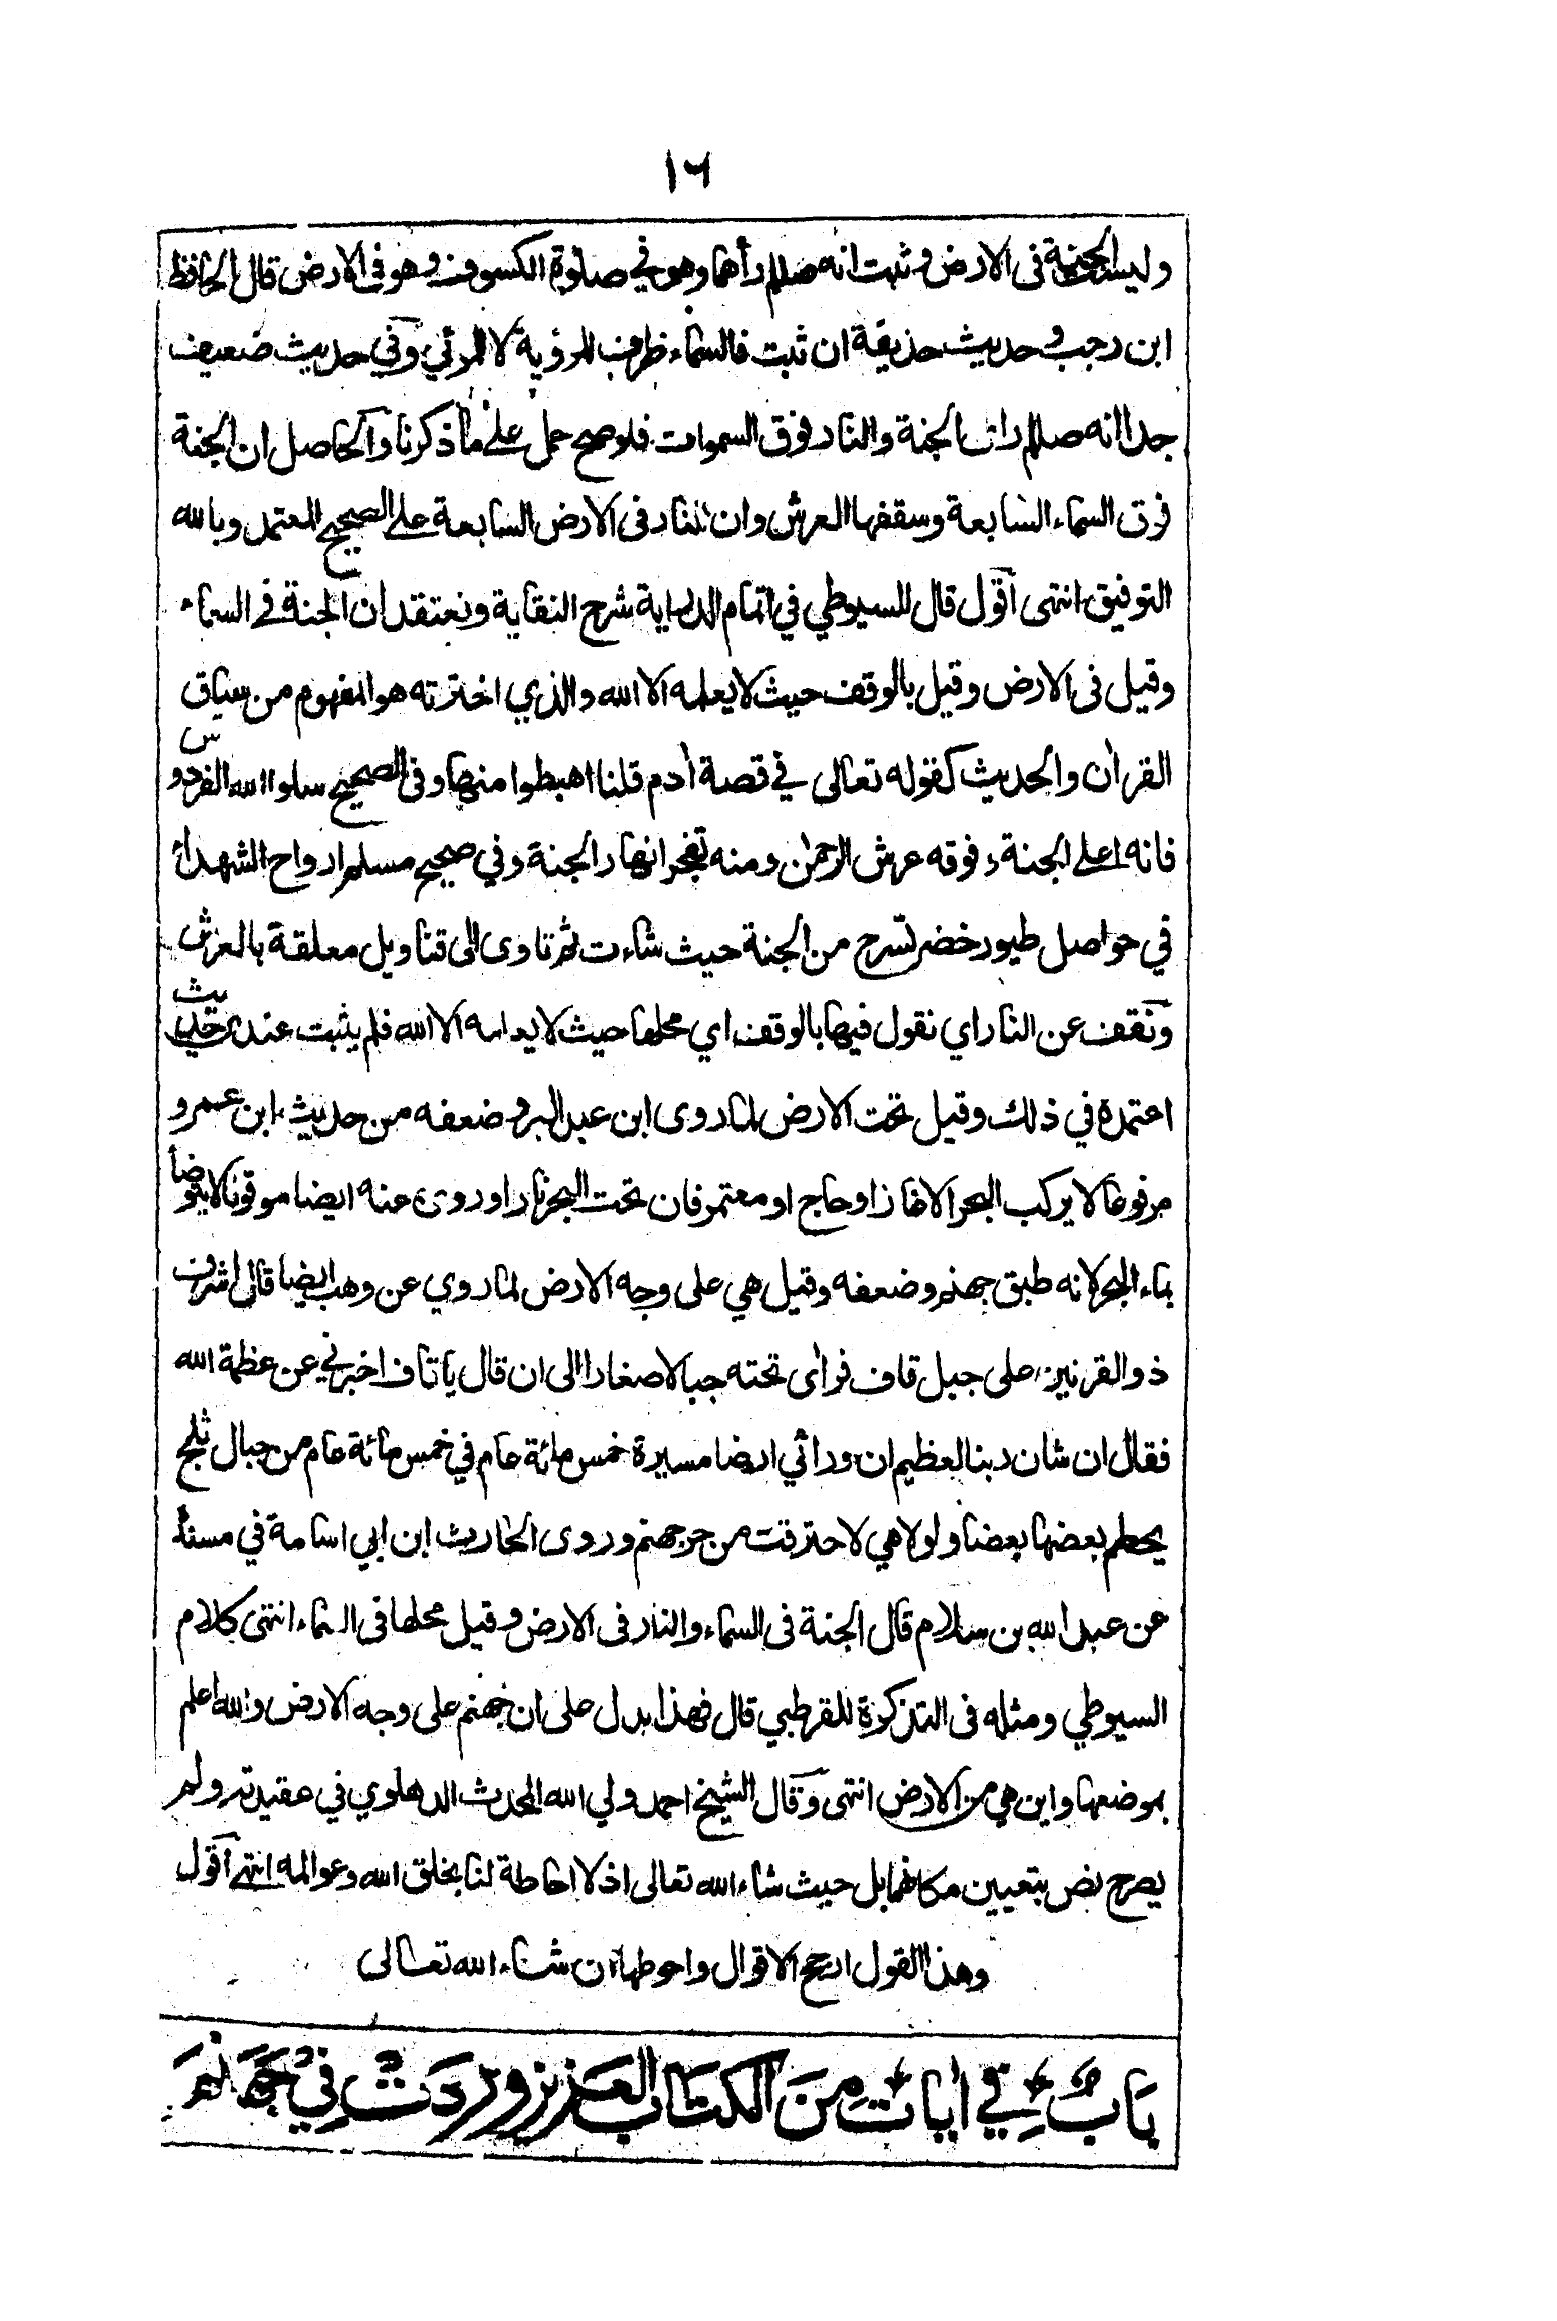 ١٦
وليست الجنة في الارض وثبت انه صللم رأهما وهو في صلوة الكسوف وهو في الارض قال الحافظ
ابن رجب وحديث حذيفة ان ثبت فالسماء ظرف للرؤية لا للمرئي وفي حديث ضعيف
جدا انه صللم رات الجنة والنار فوق السموات فلو صح حمل على ما ذكرنا والحاصل ان الجنة
فوق السماء السابعة وسقفها العرش وان النار في الارض السابعة على الصحيح المعتمد وبالله
التوفيق انتهى اقول قال السيوطي في اتمام الدراية شرح النقاية ونعتقد ان الجنة في السماء
وقيل في الارض وقيل بالوقف حيث لا يعلمه الا الله والذي اخترته هو المفهوم من سياق
القرآن والحديث كقوله تعالى في قصة أدم قلنا اهبطوا منها وفي الصحيح سلوا الله الفردوس
فانه اعلى الجنة وفوقه عرش الرحمن ومنه تفجر انهار الجنة وفي صحيح مسلم ارواح الشهداء
في حواصل طيور خضر تسرح من الجنة حيث شاءت ثم تاوى الى قناويل معلقة بالعرش
ونقف عن النار اي نقول فيها بالوقف اي محلها حيث لا يعلمه الا الله فلم يثبت عندي حديث
اعتمده في ذلك وقيل تحت الارض لما روى ابن عبد البر وضعفه من حديث ابن عمرو
مرفوعا لا يركب البحر الا غاز او حاج او معتمر فان تحت البحر نارا وروى عنه ايضا موقوفا لا يتوضأ
بماء البحر لانه طبق جهنم وضعفه وقيل هي على وجه الارض لما روي عن وهب ايضا قال اشرف
ذو القرنين على جبل قاف فرأى تحته جبالا صغارا الى ان قال يا قاف اخبرني عن عظمة الله
فقال ان شان ربنا لعظيم ان ورائي ارضا مسيرة خمس مائة عام في خمس مائة عام من جبال ثلج
يحطم بعضها بعضا ولولا هي لاحترقت من حر جهنم وروى الحاريث ابن ابي اسامة في مسنده
عن عبد الله بن سلام قال الجنة في السماء والنار في الارض وقيل محلها في السماء انتهى كلام
السيوطي ومثله في التذكرة للقرطبي قال فهذا يدل على ان جهنم على وجه الارض والله اعلم
بموضعها واين هي من الارض انتهى وقال الشيخ احمد ولي الله المحدث الدهلوي في عقيدته ولم
يصرح نص بتعيين مكانهما بل حيث شاء الله تعالى اذ لا احاطة لنا بخلق الله وعوالمه انتهى اقول
وهذا القول ارجح الاقوال واحوطها ان شاء الله تعالى
بَابٌ فِي أيَاتٍ مِنَ الْكِتَابِ الْعَزِيزِ وَرَدَتْ فِي جَهَنَّمَ